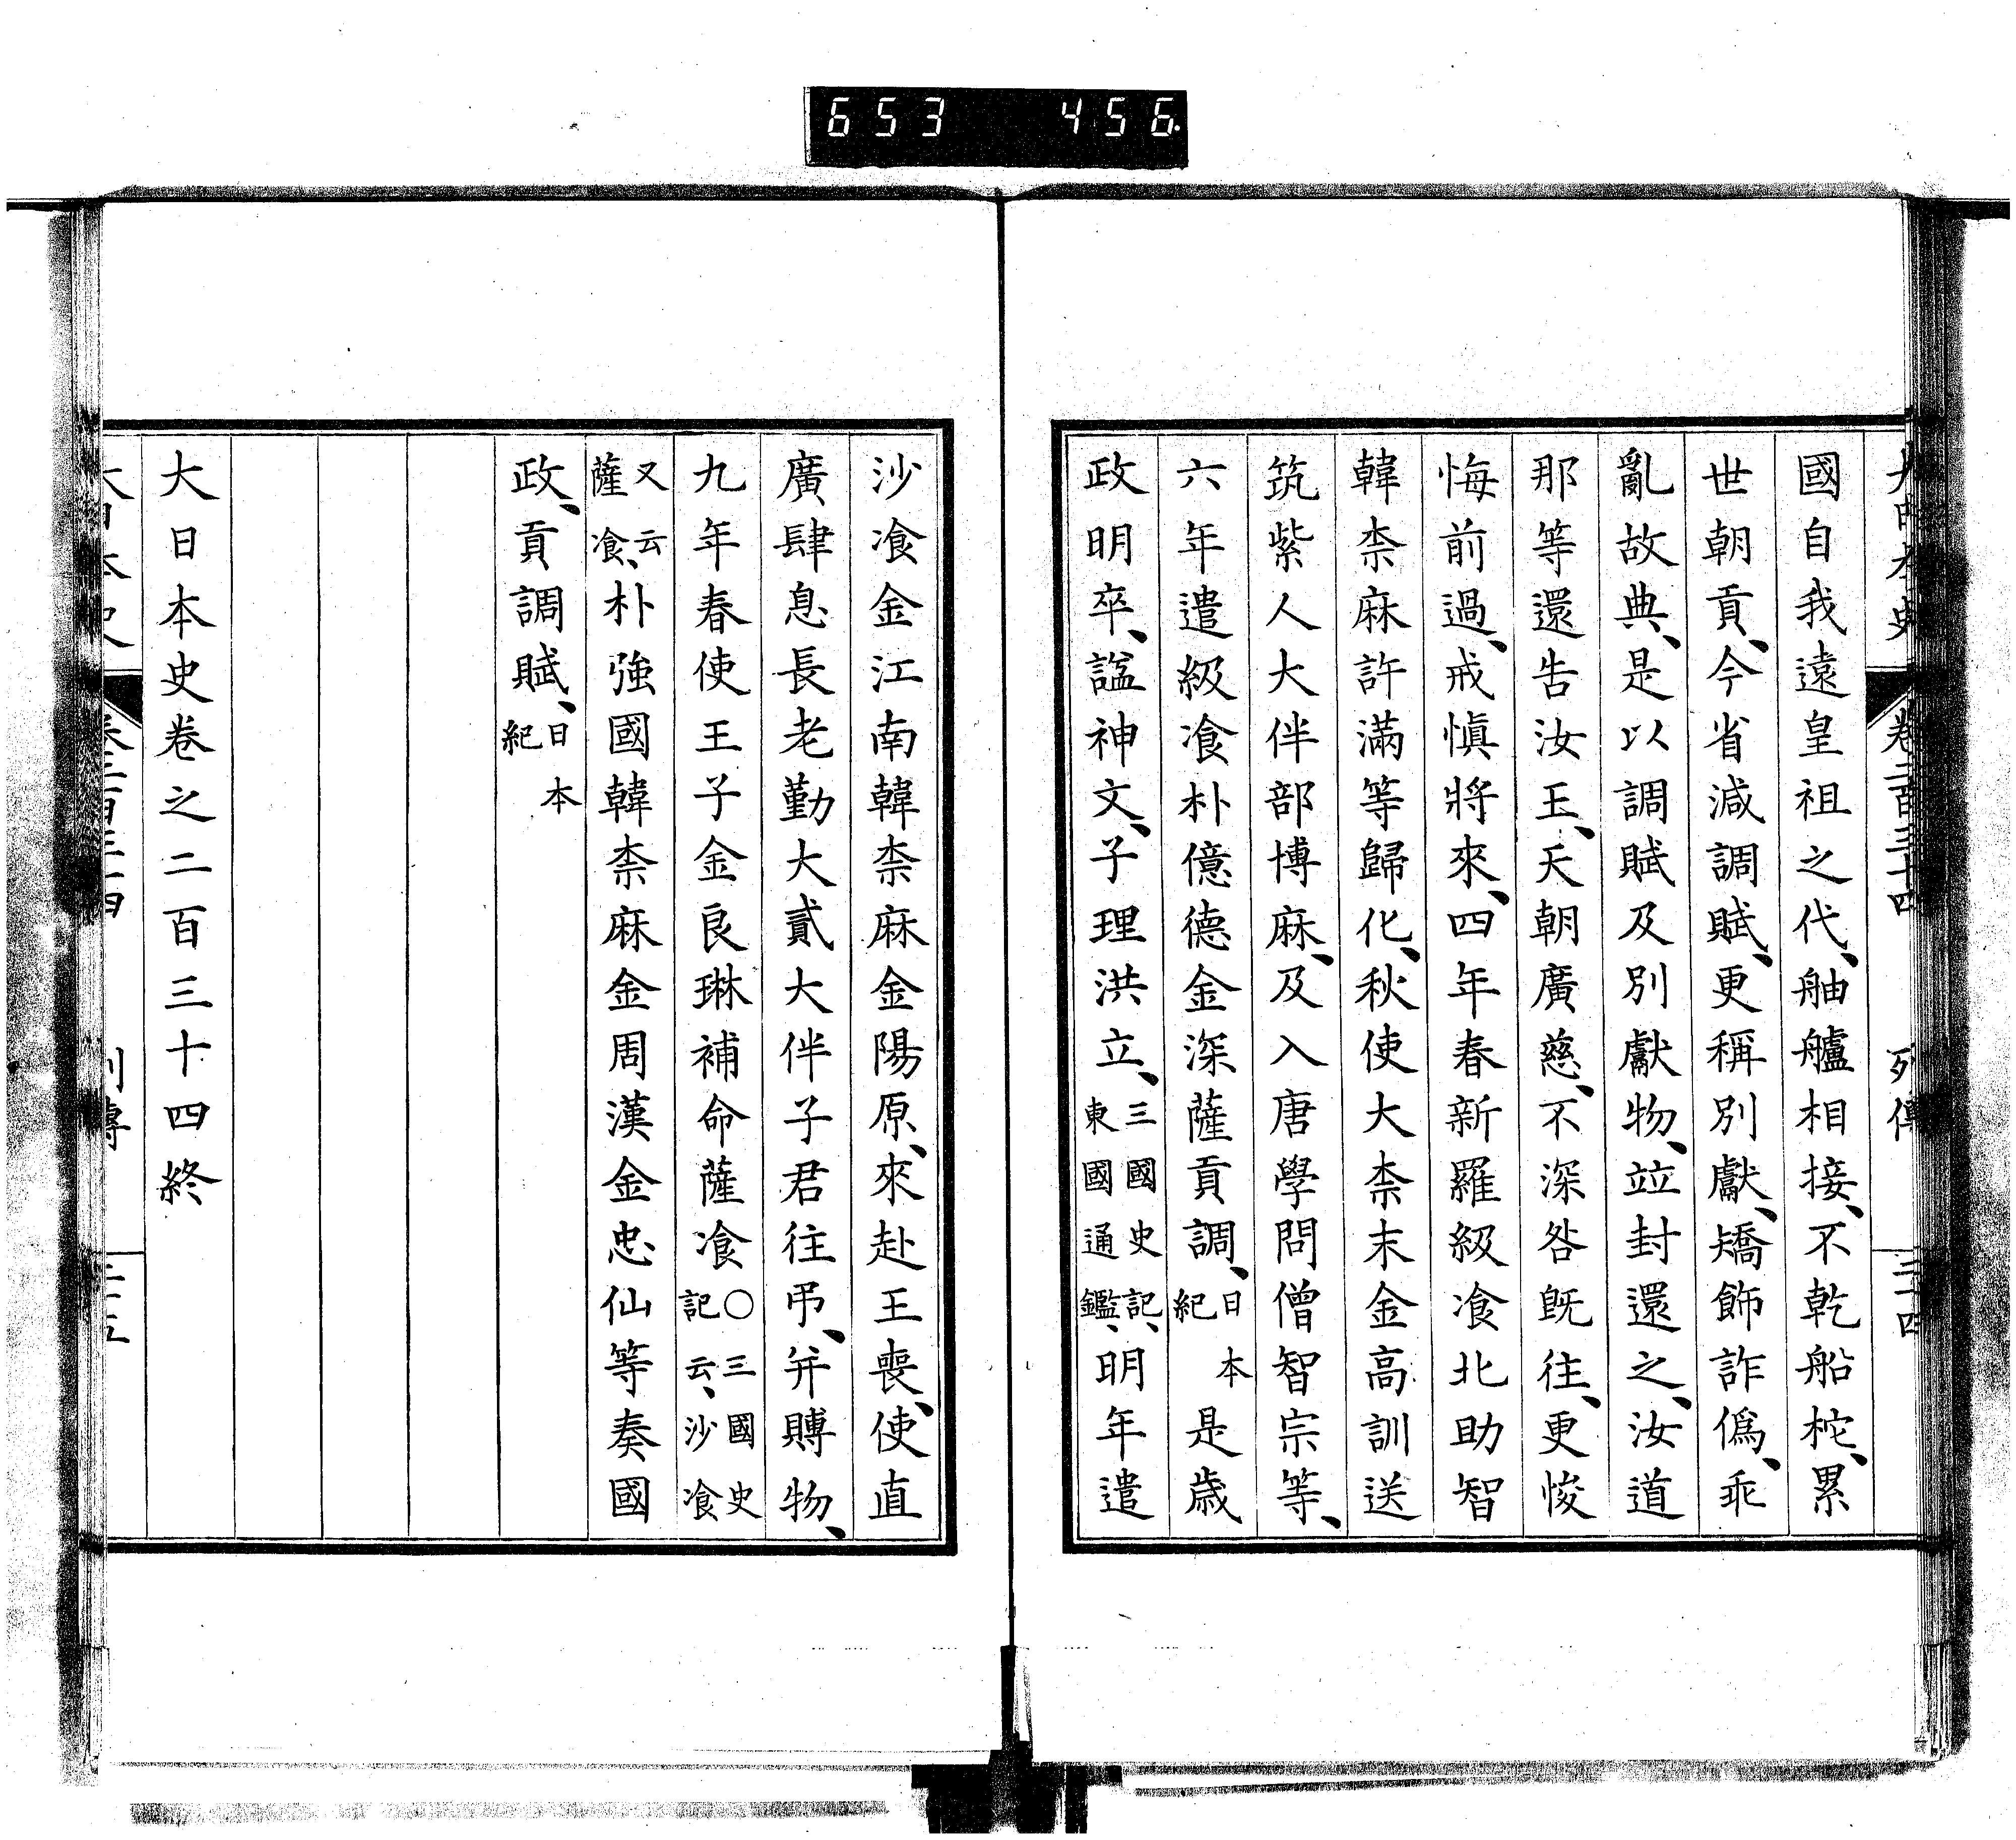 653 456.
大日本史 卷二百三十四 列傳 三十四
國自我遠皇祖之代、舳艫相接、不乾船柁、累
世朝貢、今省減調賦、更稱別獻、矯飾詐僞、乖
亂故典、是以調賦及別獻物、竝封還之、汝道
那等還告汝王、天朝廣慈、不深咎旣往、更悛
悔前過、戒愼將來、四年春新羅級飡北助智
韓柰麻許滿等歸化、秋使大柰末金高訓送
筑紫人大伴部博麻、及入唐學問僧智宗等、
六年遣級飡朴億德金深薩貢調、日本紀是歲
政明卒、諡神文、子理洪立、三國史記、東國通鑑、明年遣
沙飡金江南韓柰麻金陽原、來赴王喪、使直
廣肆息長老勤大貳大伴子君往弔、幷賻物、
九年春使王子金良琳補命薩飡○三國史記云、沙飡
又云薩飡、朴強國韓柰麻金周漢金忠仙等奏國
政、貢調賦、日本紀
大日本史卷之二百三十四終
大日本史 卷二百三十四 列傳 三十五